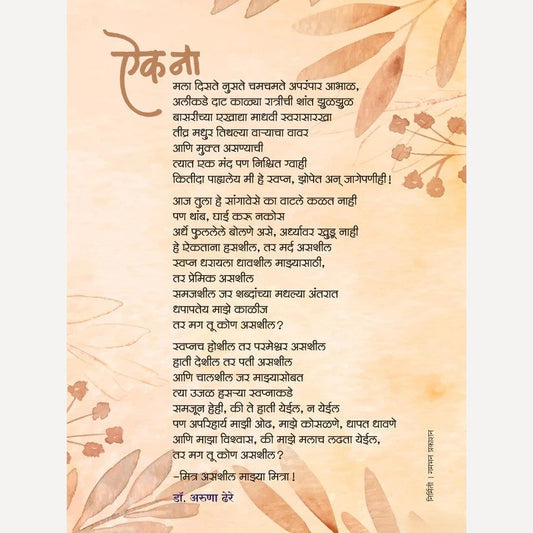 ऐक ना
मला दिसते नुसते चमचमते अपरंपार आभाळ,
अलीकडे दाट काळ्या रात्रीची शांत झुळझुळ
बासरीच्या एखाद्या माधवी स्वरासारखा
तीव्र मधुर तिथल्या वाऱ्याचा वावर
आणि मुक्त असण्याची
त्यात एक मंद पण निश्चित ग्वाही
कितीदा पाहालेय मी हे स्वप्न, झोपेत अन् जागेपणीही!
आज तुला हे सांगावेसे का वाटले कळत नाही
पण थांब, घाई करू नकोस
अर्धे फुललेले बोलणे असे, अर्ध्यावर खुडू नाही
हे ऐकताना हसशील, तर मर्द असशील
स्वप्न धरायला धावशील माझ्यासाठी,
तर प्रेमिक असशील
समजशील जर शब्दांच्या मधल्या अंतरात
धपापतेय माझे काळीज
तर मग तू कोण असशील?
स्वप्नच होशील तर परमेश्वर असशील
हाती देशील तर पती असशील
आणि चालशील जर माझ्यासोबत
त्या उजळ हसऱ्या स्वप्नाकडे
समजून हेही, की ते हाती येईल, न येईल
पण अपरिहार्य माझी ओढ, माझे कोसळणे, धापत धावणे
आणि माझा विश्वास, की माझे मलाच लढता येईल,
तर मग तू कोण असशील?
–मित्र असशील माझ्या मित्रा!
डॉ. अरुणा ढेरे
निर्मिती । नममन प्रकाशन